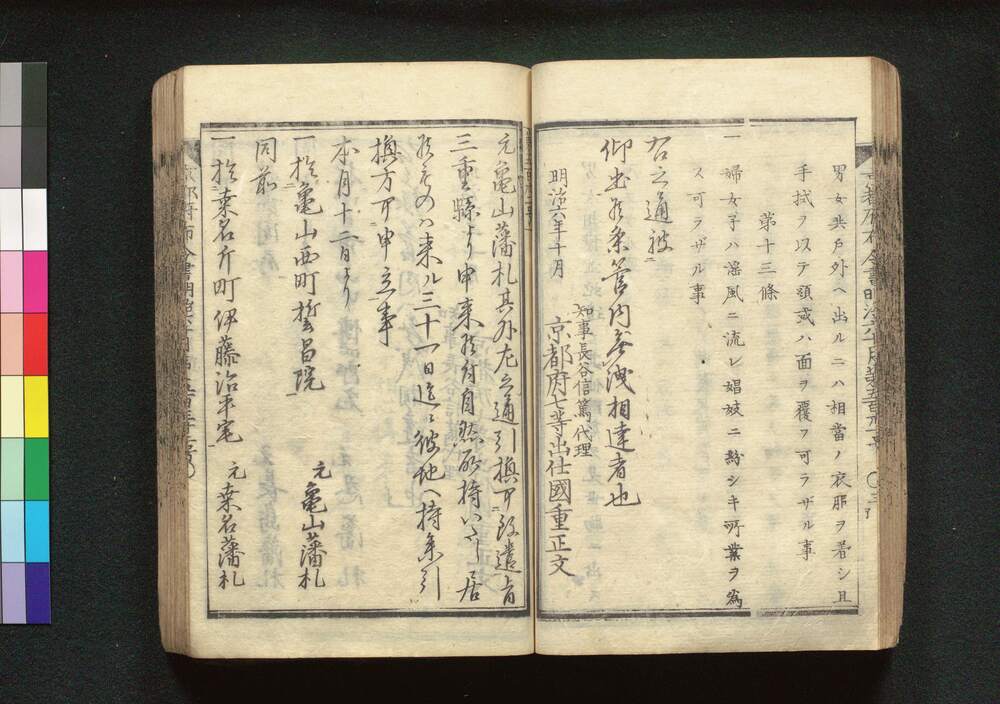 男女共戸外ヘ出ルニハ相當ノ衣服ヲ着シ且
手拭ヲ以テ頭或ハ面ヲ覆フ可ラザル事
第十三條
一 婦女子ハ滛風ニ流レ娼妓ニ紛シキ所業ヲ為
ス可ラザル事
右之通被
仰出候条管内無洩相達者也
明治六年十月
知事長谷信篤代理
京都府七等出仕國重正文
元亀山藩札其外左之通引換可致遣旨
三重縣より申来候付自然所持いたし居
候ものハ来ル三十一日迠ニ彼地へ持参引
換方可申立事
本月十二日より
一於亀山西町誓昌院
元亀山藩札
同前
一於桒名片町伊藤治平宅
元桒名藩札